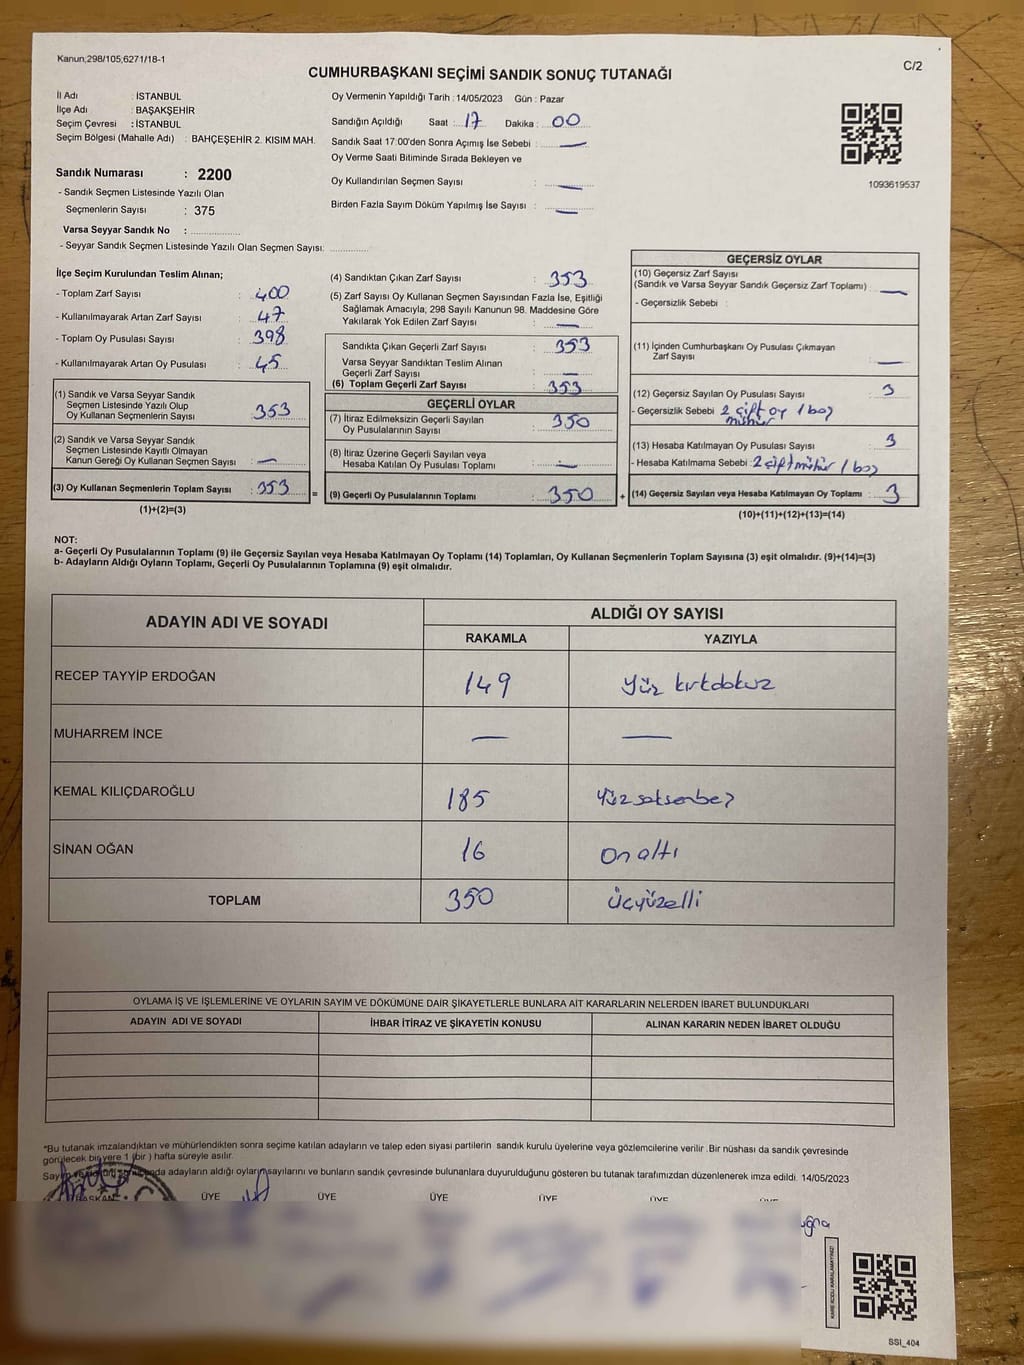 Kanun;298/105;6271/18-1
C/2
CUMHURBAŞKANI SEÇİMİ SANDIK SONUÇ TUTANAĞI
İl Adı : İSTANBUL
İlçe Adı : BAŞAKŞEHİR
Seçim Çevresi : İSTANBUL
Seçim Bölgesi (Mahalle Adı) : BAHÇEŞEHİR 2. KISIM MAH.
Sandık Numarası : 2200
- Sandık Seçmen Listesinde Yazılı Olan
Seçmenlerin Sayısı : 375
Varsa Seyyar Sandık No :
- Seyyar Sandık Seçmen Listesinde Yazılı Olan Seçmen Sayısı:
Oy Vermenin Yapıldığı Tarih : 14/05/2023 Gün : Pazar
Sandığın Açıldığı Saat : 17 Dakika : 00
Sandık Saat 17:00'den Sonra Açımış İse Sebebi : —
Oy Verme Saati Bitiminde Sırada Bekleyen ve
Oy Kullandırılan Seçmen Sayısı : —
Birden Fazla Sayım Döküm Yapılmış İse Sayısı : —
1093619537
İlçe Seçim Kurulundan Teslim Alınan;
- Toplam Zarf Sayısı : 400
- Kullanılmayarak Artan Zarf Sayısı : 47
- Toplam Oy Pusulası Sayısı : 398
- Kullanılmayarak Artan Oy Pusulası : 45
(1) Sandık ve Varsa Seyyar Sandık
Seçmen Listesinde Yazılı Olup
Oy Kullanan Seçmenlerin Sayısı : 353
(2) Sandık ve Varsa Seyyar Sandık
Seçmen Listesinde Kayıtlı Olmayan
Kanun Gereği Oy Kullanan Seçmen Sayısı : —
(3) Oy Kullanan Seçmenlerin Toplam Sayısı : 353
(1)+(2)=(3)
(4) Sandıktan Çıkan Zarf Sayısı : 353
(5) Zarf Sayısı Oy Kullanan Seçmen Sayısından Fazla İse, Eşitliği
Sağlamak Amacıyla, 298 Sayılı Kanunun 98. Maddesine Göre
Yakılarak Yok Edilen Zarf Sayısı : —
Sandıkta Çıkan Geçerli Zarf Sayısı : 353
Varsa Seyyar Sandıktan Teslim Alınan
Geçerli Zarf Sayısı : —
(6) Toplam Geçerli Zarf Sayısı : 353
GEÇERLİ OYLAR
(7) İtiraz Edilmeksizin Geçerli Sayılan
Oy Pusulalarının Sayısı : 350
(8) İtiraz Üzerine Geçerli Sayılan veya
Hesaba Katılan Oy Pusulası Toplamı : —
= (9) Geçerli Oy Pusulalarının Toplamı : 350 +
GEÇERSİZ OYLAR
(10) Geçersiz Zarf Sayısı
(Sandık ve Varsa Seyyar Sandık Geçersiz Zarf Toplamı) : —
- Geçersizlik Sebebi :
(11) İçinden Cumhurbaşkanı Oy Pusulası Çıkmayan
Zarf Sayısı : —
(12) Geçersiz Sayılan Oy Pusulası Sayısı : 3
- Geçersizlik Sebebi 2 çift oy 1 boş
mühür
(13) Hesaba Katılmayan Oy Pusulası Sayısı : 3
- Hesaba Katılmama Sebebi : 2 çift mühür 1 boş
(14) Geçersiz Sayılan veya Hesaba Katılmayan Oy Toplamı : 3
(10)+(11)+(12)+(13)=(14)
NOT:
a- Geçerli Oy Pusulalarının Toplamı (9) ile Geçersiz Sayılan veya Hesaba Katılmayan Oy Toplamı (14) Toplamları, Oy Kullanan Seçmenlerin Toplam Sayısına (3) eşit olmalıdır. (9)+(14)=(3)
b- Adayların Aldığı Oyların Toplamı, Geçerli Oy Pusulalarının Toplamına (9) eşit olmalıdır.
ADAYIN ADI VE SOYADI ALDIĞI OY SAYISI
RAKAMLA YAZIYLA
RECEP TAYYİP ERDOĞAN 149 Yüz kırkdokuz
MUHARREM İNCE — —
KEMAL KILIÇDAROĞLU 185 Yüzseksenbeş
SİNAN OĞAN 16 On altı
TOPLAM 350 Üçyüzelli
OYLAMA İŞ VE İŞLEMLERİNE VE OYLARIN SAYIM VE DÖKÜMÜNE DAİR ŞİKAYETLERLE BUNLARA AİT KARARLARIN NELERDEN İBARET BULUNDUKLARI
ADAYIN ADI VE SOYADI İHBAR İTİRAZ VE ŞİKAYETİN KONUSU ALINAN KARARIN NEDEN İBARET OLDUĞU
*Bu tutanak imzalandıktan ve mühürlendikten sonra seçime katılan adayların ve talep eden siyasi partilerin sandık kurulu üyelerine veya gözlemcilerine verilir .Bir nüshası da sandık çevresinde
görülecek bir yere 1 (bir ) hafta süreyle asılır.
adayların aldığı oyların sayılarını ve bunların sandık çevresinde bulunanlara duyurulduğunu gösteren bu tutanak tarafımızdan düzenlenerek imza edildi. 14/05/2023
BAŞKAN ÜYE ÜYE ÜYE ÜYE ÜYE
KARE KODU KARALAMAYINIZ!
SSI_404